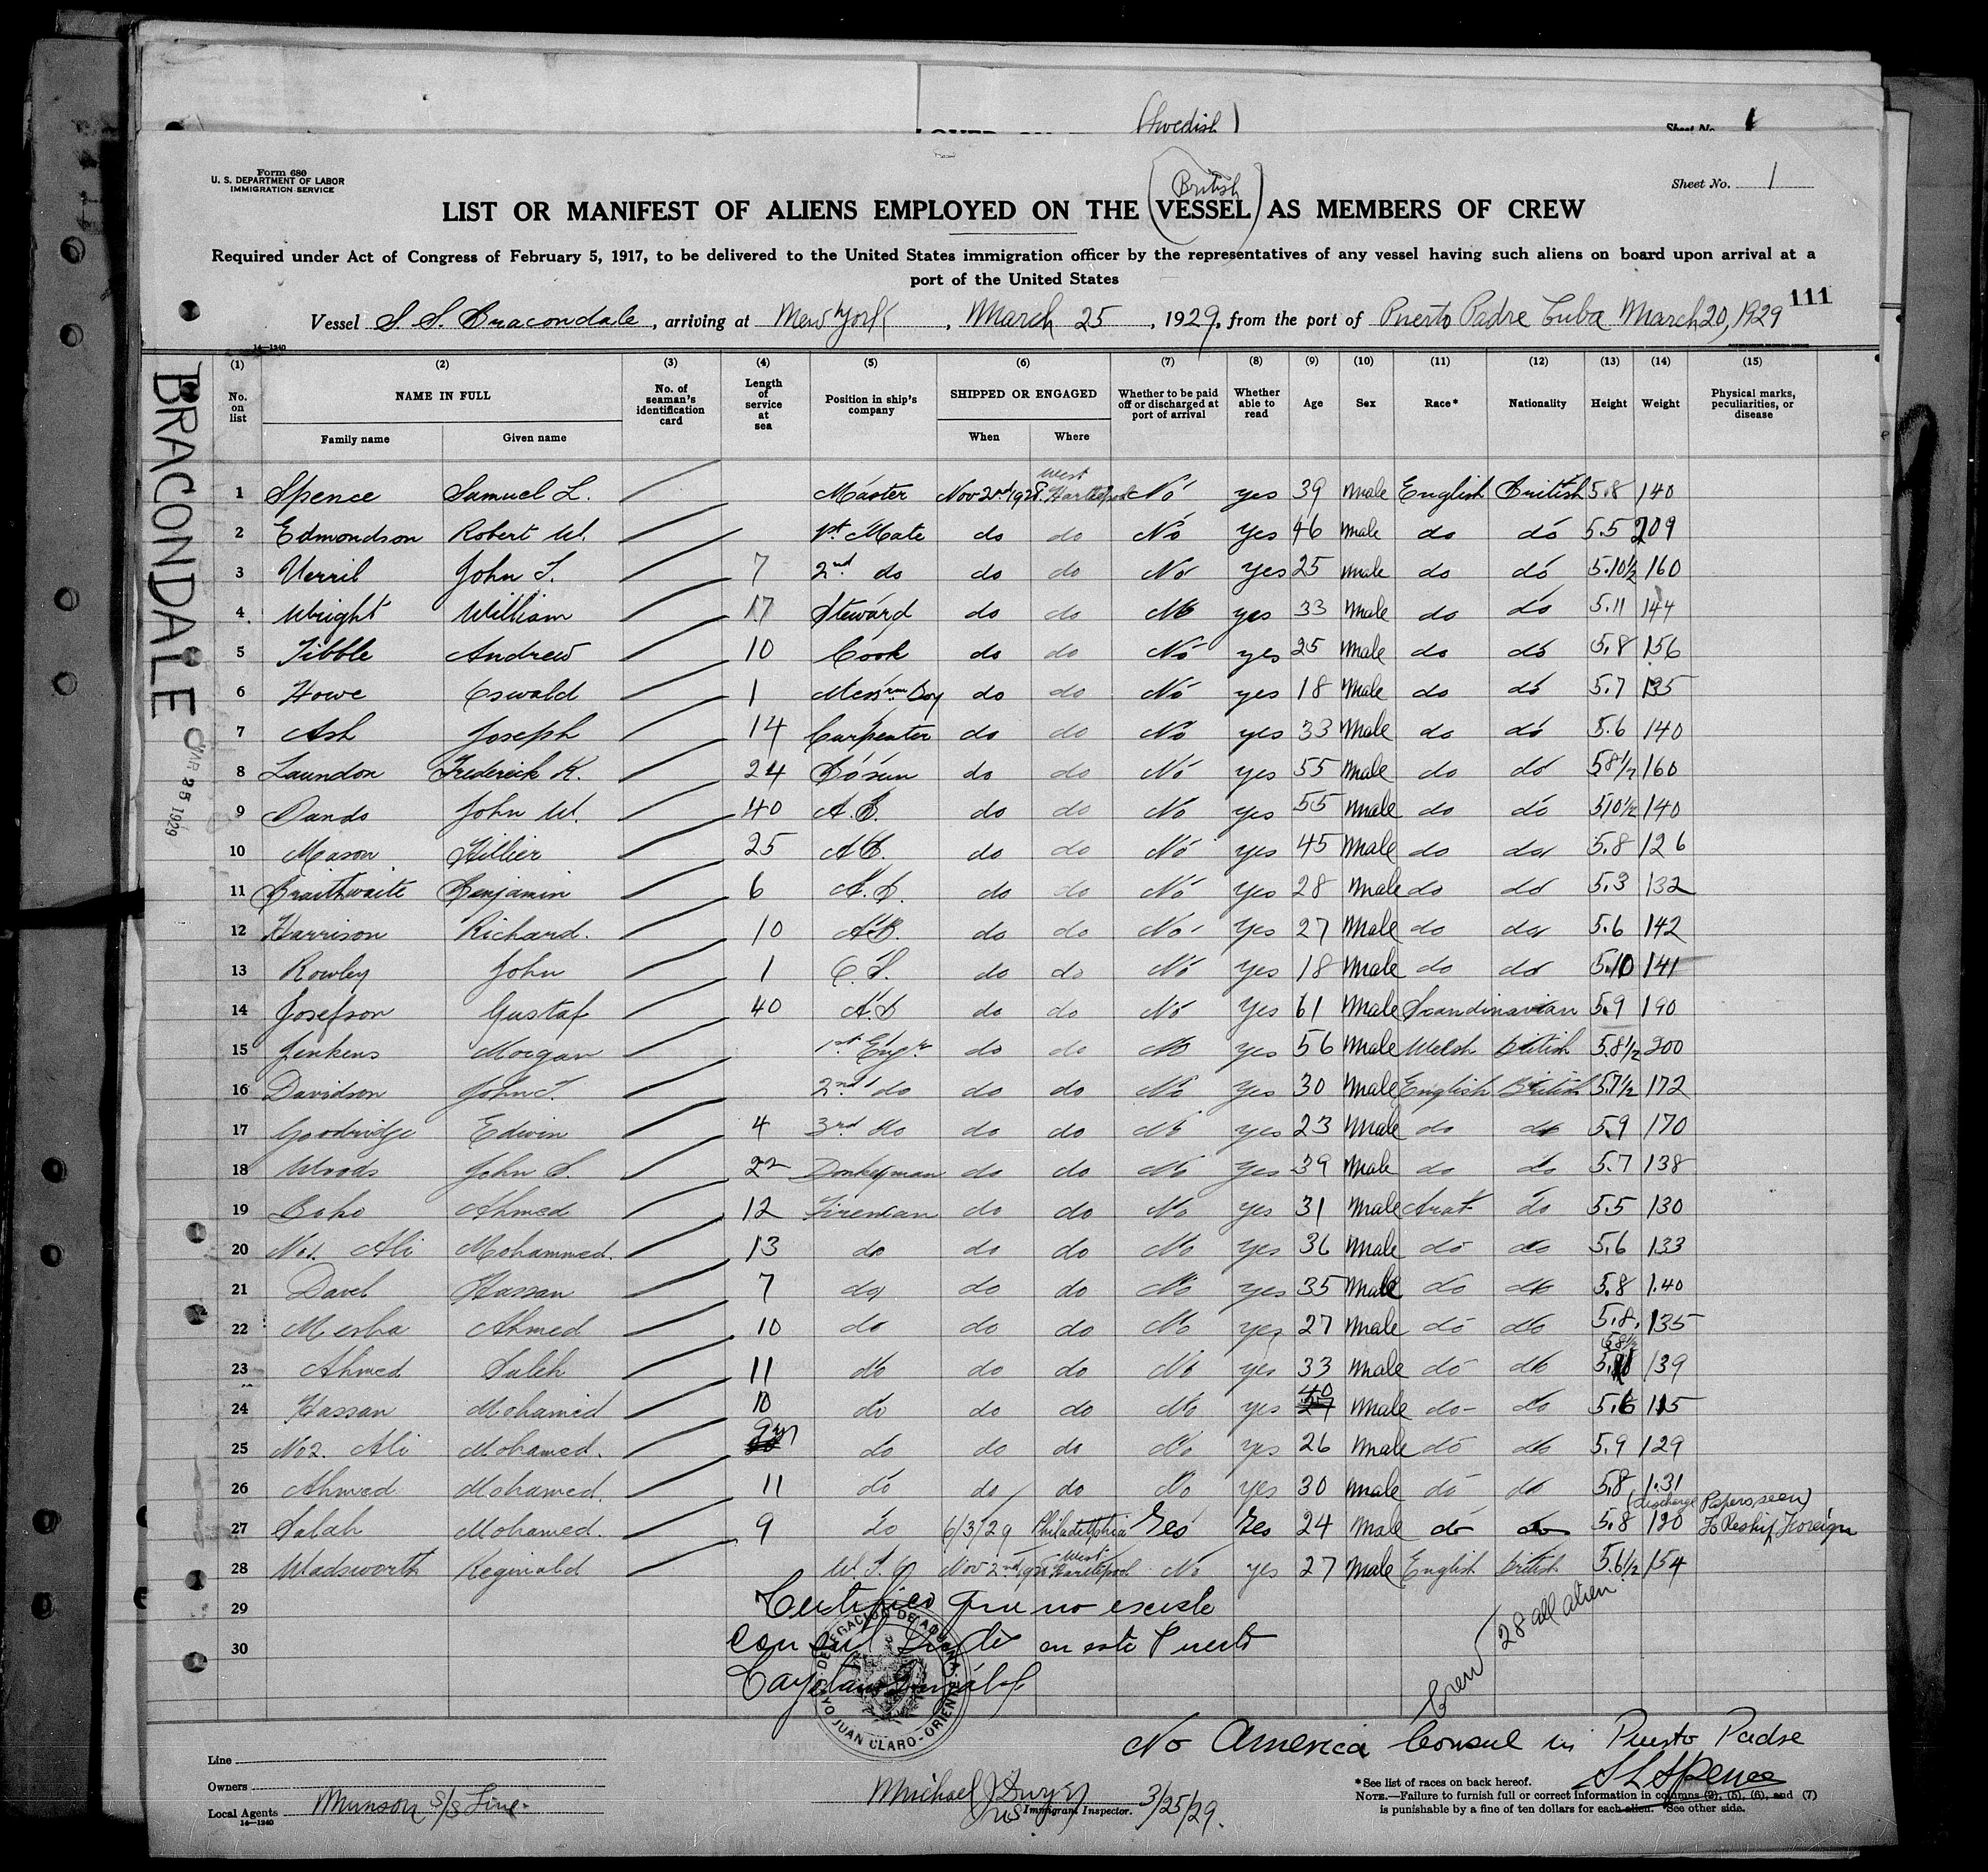 (Swedish)
Sheet No. 1
Form 680
U. S. DEPARTMENT OF LABOR
IMMIGRATION SERVICE
(British)
Sheet No. 1
LIST OR MANIFEST OF ALIENS EMPLOYED ON THE VESSEL AS MEMBERS OF CREW
Required under Act of Congress of February 5, 1917, to be delivered to the United States immigration officer by the representatives of any vessel having such aliens on board upon arrival at a
port of the United States
111
Vessel S S. Bracondale, arriving at New York, March 25, 1929, from the port of Puerto Padre Cuba March 20, 1929
14—1240
BRACONDALE
MAR 25 1929
(1) (2) (3) (4) (5) (6) (7) (8) (9) (10) (11) (12) (13) (14) (15)
No. on list NAME IN FULL No. of seaman's identification card Length of service at sea Position in ship's company SHIPPED OR ENGAGED Whether to be paid off or discharged at port of arrival Whether able to read Age Sex Race* Nationality Height Weight Physical marks, peculiarities, or disease
Family name Given name When Where
1 Spence Samuel L. Master Nov 2nd 1928. West Hartlepool No yes 39 male English British 5.8 140
2 Edmondson Robert W. 1st Mate do do No Yes 46 male do do 5.5 209
3 Verril John T. 7 2nd do do do No Yes 25 male do do 5.10½ 160
4 Wright William 17 Steward do do No yes 33 Male do do 5.11 144
5 Tibble Andrew 10 Cook do do No yes 25 Male do do 5.8 156
6 Howe Oswald 1 Messrm Boy do do No yes 18 Male do do 5.7 135
7 Ash Joseph 14 Carpenter do do No yes 33 Male do do 5.6 140
8 Laundon Frederick K. 24 Bosun do do No yes 55 Male do do 5 8½ 160
9 Dands John W. 40 A.B. do do No yes 55 Male do do 5 10½ 140
10 Mason Hillier 25 AB. do do No yes 45 Male do do 5.8 126
11 Braithwaite Benjamin 6 A.B. do do No Yes 28 Male do do 5.3 132
12 Harrison Richard. 10 A.B. do do No Yes 27 Male do do 5.6 142
13 Rowley John 1 O.S. do do No Yes 18 Male do do 5.10 141
14 Josefson Gustaf 40 A.B do do No Yes 61 Male Scandinavian 5.9 190
15 Jenkens Morgan 1st Engr do do No yes 56 Male Welsh British 5.8½ 200
16 Davidson John T. 2nd do do do No Yes 30 Male English British 5.7½ 172
17 Goodridge Edwin 4 3rd do do do No yes 23 Male do do 5.9 170
18 Woods John S. 22 Donkeyman do do No Yes 39 Male do do 5.7 138
19 Boho Ahmed 12 Fireman do do No yes 31 Male Arab do 5.5 130
20 No1. Ali Mohammed. 13 do do do No yes 36 Male do do 5.6 133
21 Davel Hassan 7 do do do No yes 35 Male do do 5.8 140
22 Mesha Ahmed 10 do do do No yes 27 Male do do 5.8. 135
23 Ahmed Saleh 11 do do do No yes 33 Male do do 5 8½ 139
24 Hassan Mohamed 10 do do do No yes 40 Male do do 5.6 115
25 No2. Ali Mohamed. do do do No yes 26 Male do do 5.9 129
26 Ahmed Mohamed. 11 do do do No yes 30 Male do do 5.8 131
27 Salah Mohamed. 9 do 6/3/29 Philadelphia Yes Yes 24 Male do do 5.8 120 (discharge Papers seen) To Reship Foreign
28 Wadsworth Reginald W.T.O Nov 2nd 1928 West Hartlepool No yes 27 Male English British 5.6½ 154
29 Certifico que no existe
30 Consul en este Puerto
Cayetano
DELEGACION DE ADUANA
CAYO JUAN CLARO-ORIENTE
Crew 28 all alien
No America Consul in Puerto Padre
S L Spence
Line
Owners
Local Agents Munson S/S Line.
14—1240
Michael J Dwyer
Immigrant Inspector. 3/25/29.
*See list of races on back hereof.
NOTE.—Failure to furnish full or correct information in columns (2), (5), (6), and (7)
is punishable by a fine of ten dollars for each alien. *See other side.